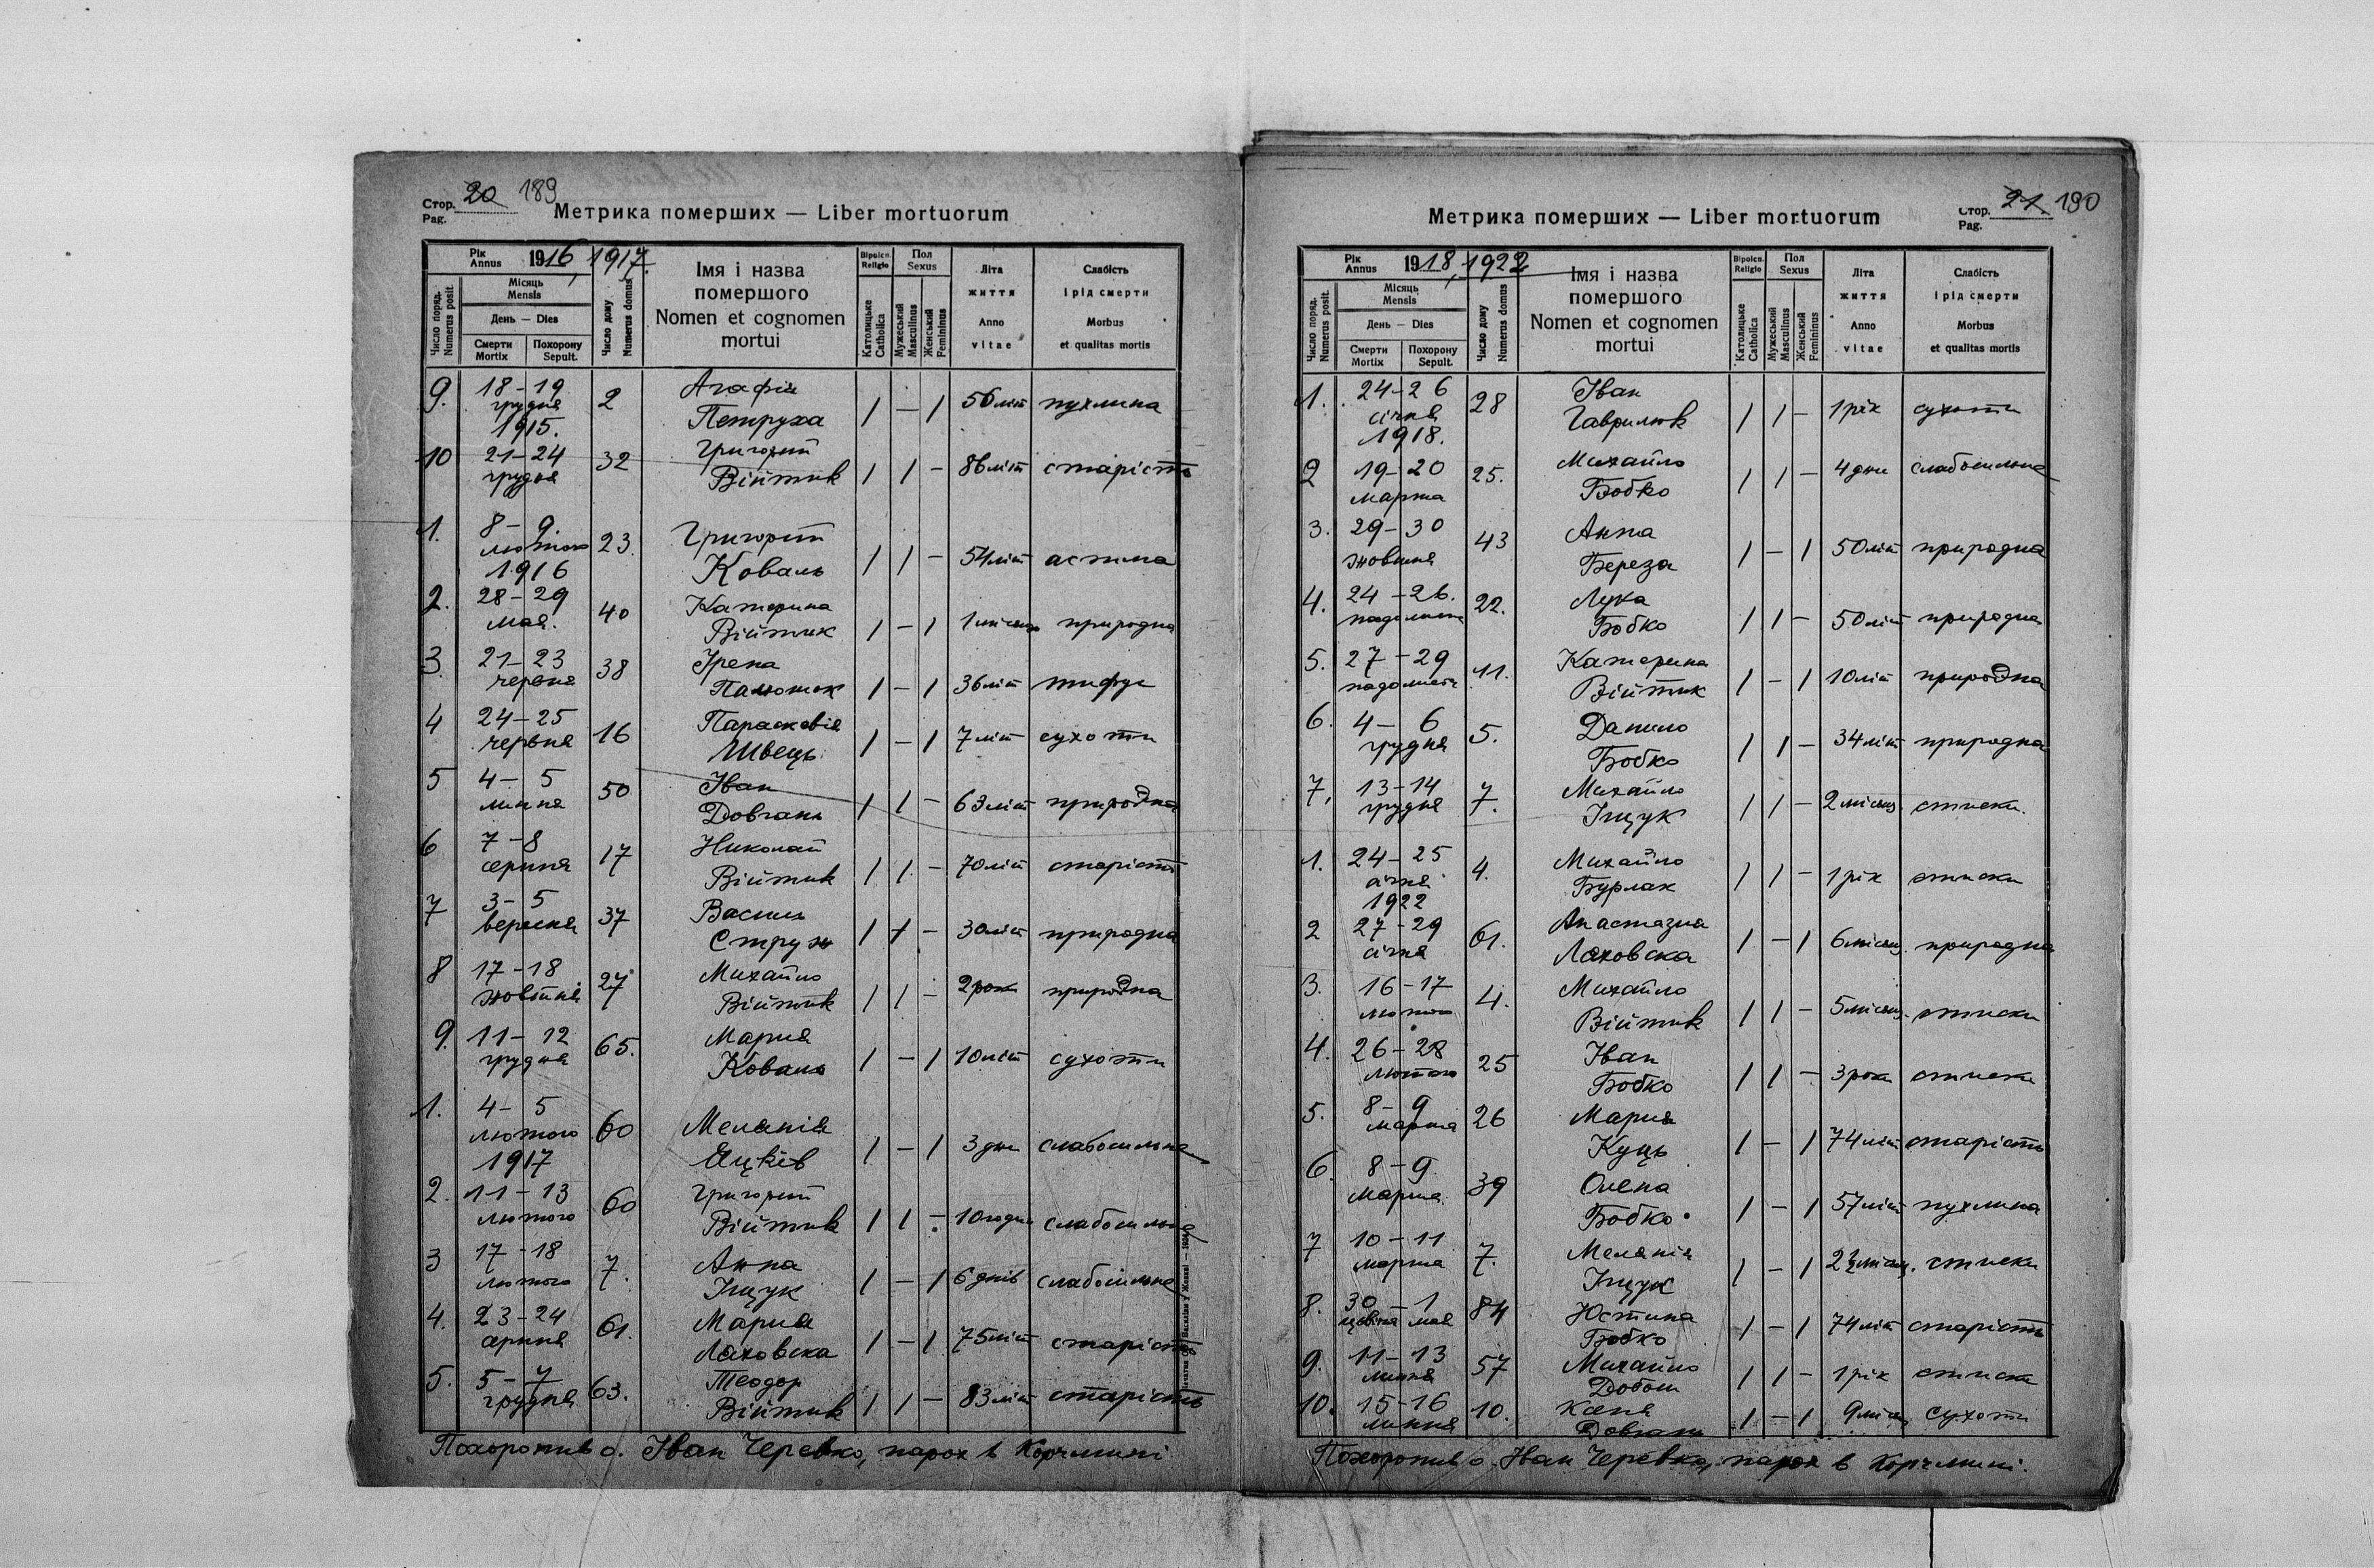 Стор. 20 189
Pag.
Метрика померших — Liber mortuorum
Рік Annus 1916, 1917.
Число поряд. Numerus posit.
Місяць Mensis
День — Dies
Смерти Mortix
Похорону Sepult.
Число дому Numerus domus
Імя і назва
помершого
Nomen et cognomen
mortui
Віроісп. Religio
Католицьке Catholica
Пол Sexus
Мужеський Masculinus
Женський Femininus
Літа
життя
Anno
vitae
Слабість
і рід смерти
Morbus
et qualitas mortis
9. 18 - 19 грудня 1915. 2 Агафія Петруха 1 — 1 56 літ пухлина
10 21 - 24 грудня 32 Григорій Війтик 1 1 — 86 літ старість
1. 8 - 9. лютого 1916 23. Григорій Коваль 1 1 — 54 літ астма
2. 28 - 29 мая. 40 Катерина Війтик 1 — 1 1 місяць природна
3. 21 - 23 червня 38 Ірена 1 — 1 36 літ тифус
4 24 - 25 червня 16 Параскевія Швець 1 — 1 7 літ сухоти
5 4 - 5 липня 50 Іван Довгань 1 1 — 63 літ природна
6 7 - 8 серпня 17 Николай Війтик 1 1 — 70 літ старість
7 3 - 5 вересня 37 Василь 1 1 — 30 літ природна
8 17 - 18 жовтня 27 Михайло Війтик 1 1 — 2 роки природна
9. 11 - 12 грудня 65. Мария Коваль 1 — 1 10 літ сухоти
1. 4 - 5 лютого 1917 60 Меланія Яцків 1 — 1 3 дни слабосильна
2. 11 - 13 лютого 60 Григорій Війтик 1 1 — 10 годин слабосильна
3 17 - 18 лютого 7. Анна Іщук 1 — 1 6 днів слабосильна
4. 23 - 24 серпня 61. Мария Ляховска 1 — 1 75 літ старість
5. 5 - 7 грудня 63. Теодор Війтик 1 1 — 83 літ старість
Похоронив о. Іван Черевко, парох в Корчмині
Метрика померших — Liber mortuorum
Стор. 21. 190
Pag.
Рік Annus 1918, 1922
Число поряд. Numerus posit.
Місяць Mensis
День — Dies
Смерти Mortix
Похорону Sepult.
Число дому Numerus domus
Імя і назва
помершого
Nomen et cognomen
mortui
Віроісп. Religio
Католицьке Catholica
Пол Sexus
Мужеський Masculinus
Женський Femininus
Літа
життя
Anno
vitae
Слабість
і рід смерти
Morbus
et qualitas mortis
1. 24 - 26 січня 1918. 28 Іван Гаврилюк 1 1 — 1 рік сухоти
2 19 - 20 марта 25. Михайло Бобко 1 1 — 4 дни слабосильна
3. 29 - 30 жовтня 43 Анна Береза 1 — 1 50 літ природна
4. 24 - 26. падолиста 22. Лука Бобко 1 1 — 50 літ природна
5. 27 - 29 падолиста 11. Катерина Війтик 1 — 1 10 літ природна
6. 4 - 6 грудня 5. Данило Бобко 1 1 — 34 літ природна
7. 13 - 14 грудня 7. Михайло Іщук 1 1 — 2 місяці стиски.
1. 24 - 25 січня 1922 4. Михайло Бурлак 1 1 — 1 рік стиски
2 27 - 29 січня 61. Анастазия Ляховска 1 — 1 6 місяц. природна
3. 16 - 17 лютого 4. Михайло Війтик 1 1 — 5 місяц. стиски
4. 26 - 28 лютого 25 Іван Бобко 1 1 — 3 роки стиски
5. 8 - 9 марта 26 Мария Куць 1 — 1 74 літ старість
6. 8 - 9 марта 39 Олена Бобко 1 — 1 57 літ пухлина
7 10 - 11 марта 7. Меланія Іщук 1 — 1 2½ місяц. стиски
8. 30 цвітня - 1 мая 84 Юстина Бобко 1 — 1 74 літ старість
9. 11 - 13 57 Михайло Добош 1 1 — 1 рік стиски
10. 15 - 16 липня 10. Довгань 1 — 1 9 місяц сухоти
Похоронив о. Іван Черевко, парох в Корчмині.